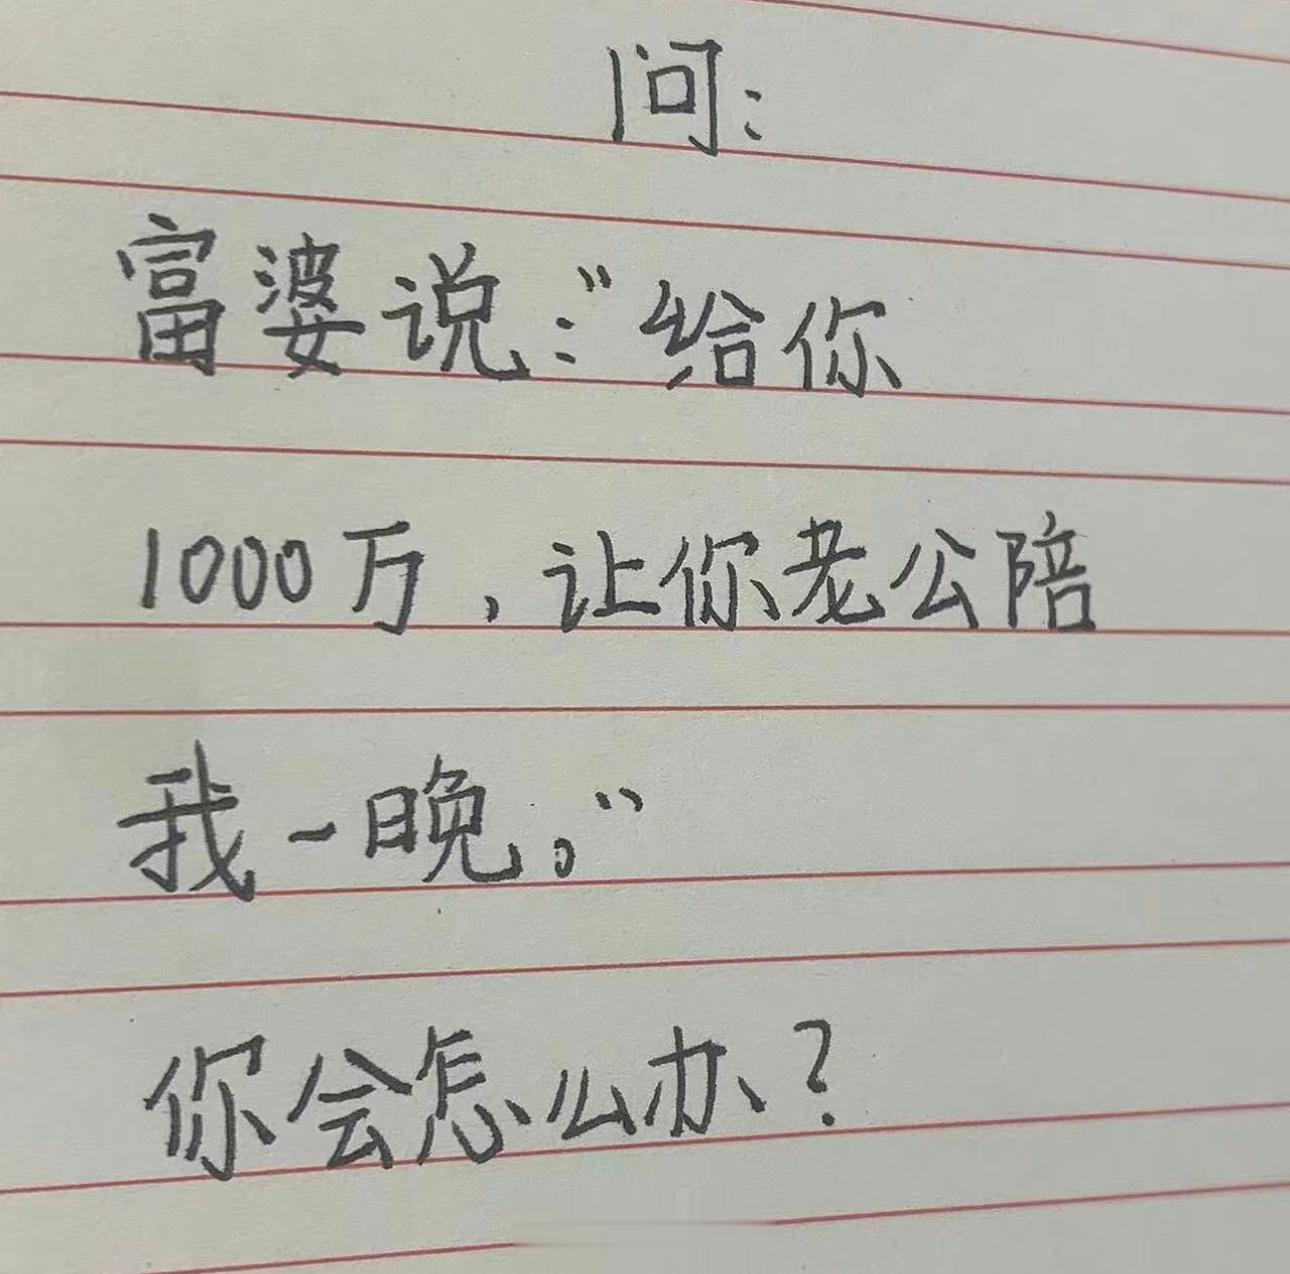 问：
富婆说：“给你
1000万，让你老公陪
我一晚。”
你会怎么办？